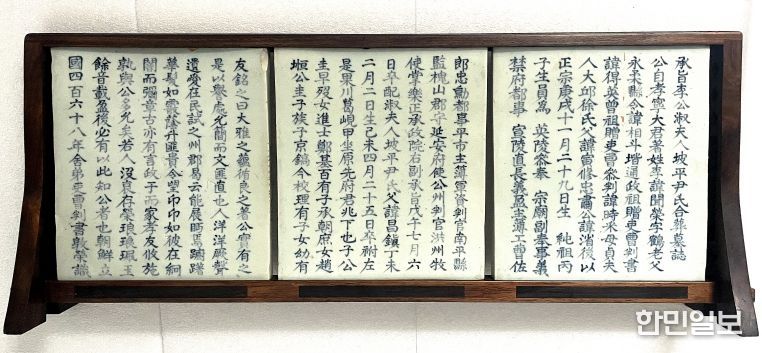 承旨李公淑夫人坡平尹氏合葬墓誌
公自孝寧大君著姓李諱閏榮字鶴老父
永柔縣令諱相斗堦通政祖贈吏曹判書
諱得英曾祖贈吏曹參判諱時采母貞夫
人大邱徐氏父諱富修忠肅公諱渻後以
正宗庚戌十一月二十九日生 純祖丙
子生員爲 英陵參奉 宗廟副奉事義
禁府都事 宣陵直長義盈主簿工曹佐
郎忠勳都事平市主簿軍資判官南平縣
監槐山郡守延安府使公州判官洪州牧
使掌樂正承政院右副承旨戊午七月六
日卒配淑夫人坡平尹氏父諱昌鎭丁未
二月二日生己未四月二十五日卒祔左
是果川葛峴甲坐原先府君兆下也子公
圭早歿女進士鄭基百有子承朝庶女趙
垣公圭子族子京鎬今校理有子女幼有
友銘之曰大雅之藹循良之著公實有之
是以譽處允簡而文匪直也人洋洋厥聲
遺愛在民試之州郡易云能展馬躕躇
華髮如雲蔭升匪貴令望卬卬如彼在絅
闇而彌章古亦有言政于而家孝友攸施
孰與公多允矣若人沒良存榮琅琅珮玉
餘音載盈後必有以此知公者也朝鮮立
國四百六十八年舍弟吏曹判書敦榮識
한민일보